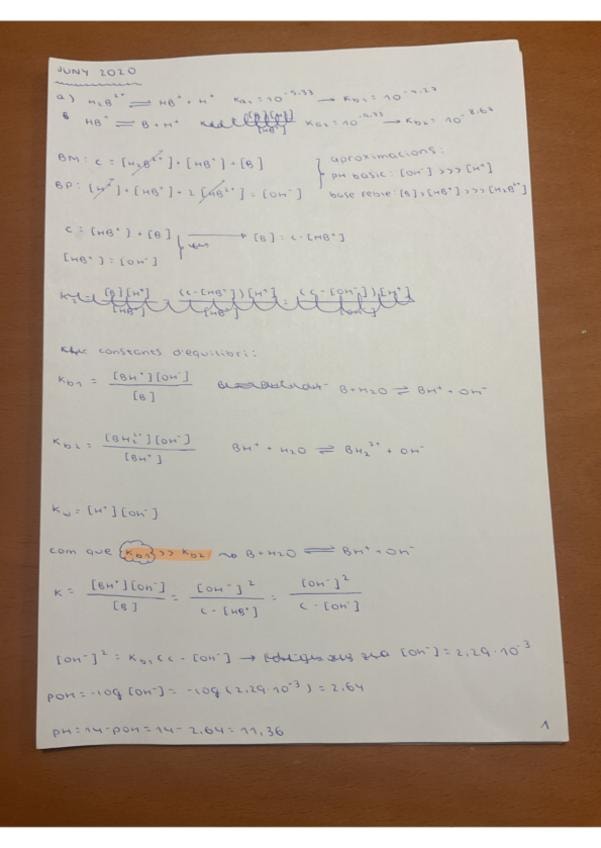 JUNY 2020
a) H₂B²⁺ ⇌ HB⁺ + H⁺ Ka₁ = 10^-5.33 → Kb₁ =
HB⁺ ⇌ B + H⁺ → Kb₂ =
BM: C = [H₂B²⁺] + [HB⁺] + [B]
BP: [H⁺] + [HB⁺] + 2[HB²⁺] = [OH⁻]
aproximacions:
pH bàsic: [OH⁻] >>> [H⁺]
base feble: [B] > [HB⁺] >>> [H₂B²⁺]
C = [HB⁺] + [B] → [B] = C - [HB⁺]
[HB⁺] = [OH⁻]
constants d'equilibri:
Kb1 = [BH⁺][OH⁻] / [B] B + H₂O ⇌ BH⁺ + OH⁻
Kb2 = [BH₂²⁺][OH⁻] / [BH⁺] BH⁺ + H₂O ⇌ BH₂²⁺ + OH⁻
Kw = [H⁺][OH⁻]
com que Kb1 >> Kb2 ⇝ B + H₂O ⇌ BH⁺ + OH⁻
K = [BH⁺][OH⁻] / [B] = [OH⁻]² / C - [HB⁺] = [OH⁻]² / C - [OH⁻]
[OH⁻]² = Kb₁ (C - [OH⁻] → [OH⁻] = 2,29·10⁻³
pOH = -log [OH⁻] = -log (2,29·10⁻³) = 2,64
pH = 14 - pOH = 14 - 2,64 = 11,36
1